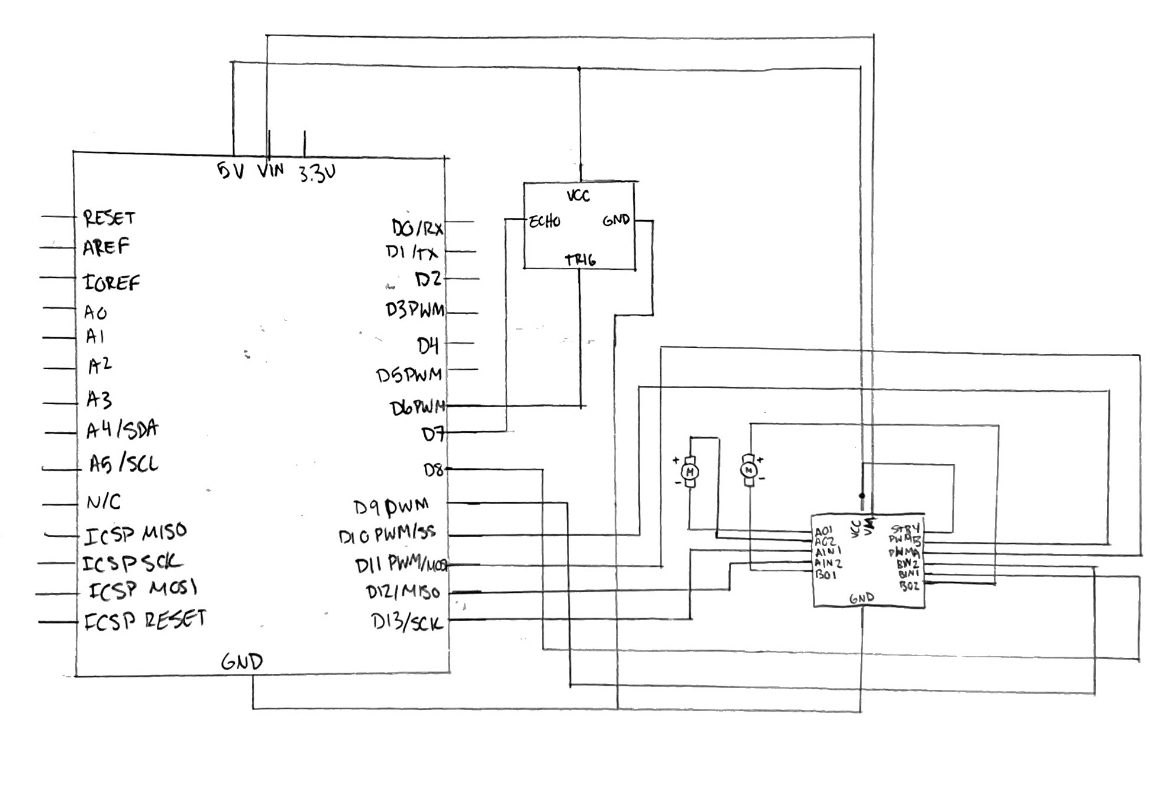 5V VIN 3.3V
RESET
AREF
IOREF
A0
A1
A2
A3
A4/SDA
A5/SCL
N/C
ICSP MISO
ICSP SCK
ICSP MOSI
ICSP RESET
GND
D0/RX
D1/TX
D2
D3PWM
D4
D5PWM
D6PWM
D7
D8
D9PWM
D10PWM/SS
D11 PWM/MOSI
D12/MISO
D13/SCK
VCC
ECHO GND
TRIG
+ M -
M + -
VCC VM
AO1
AO2
AIN1
AIN2
BO1
STBY
PWMB
PWMA
BIN2
BIN1
BO2
GND